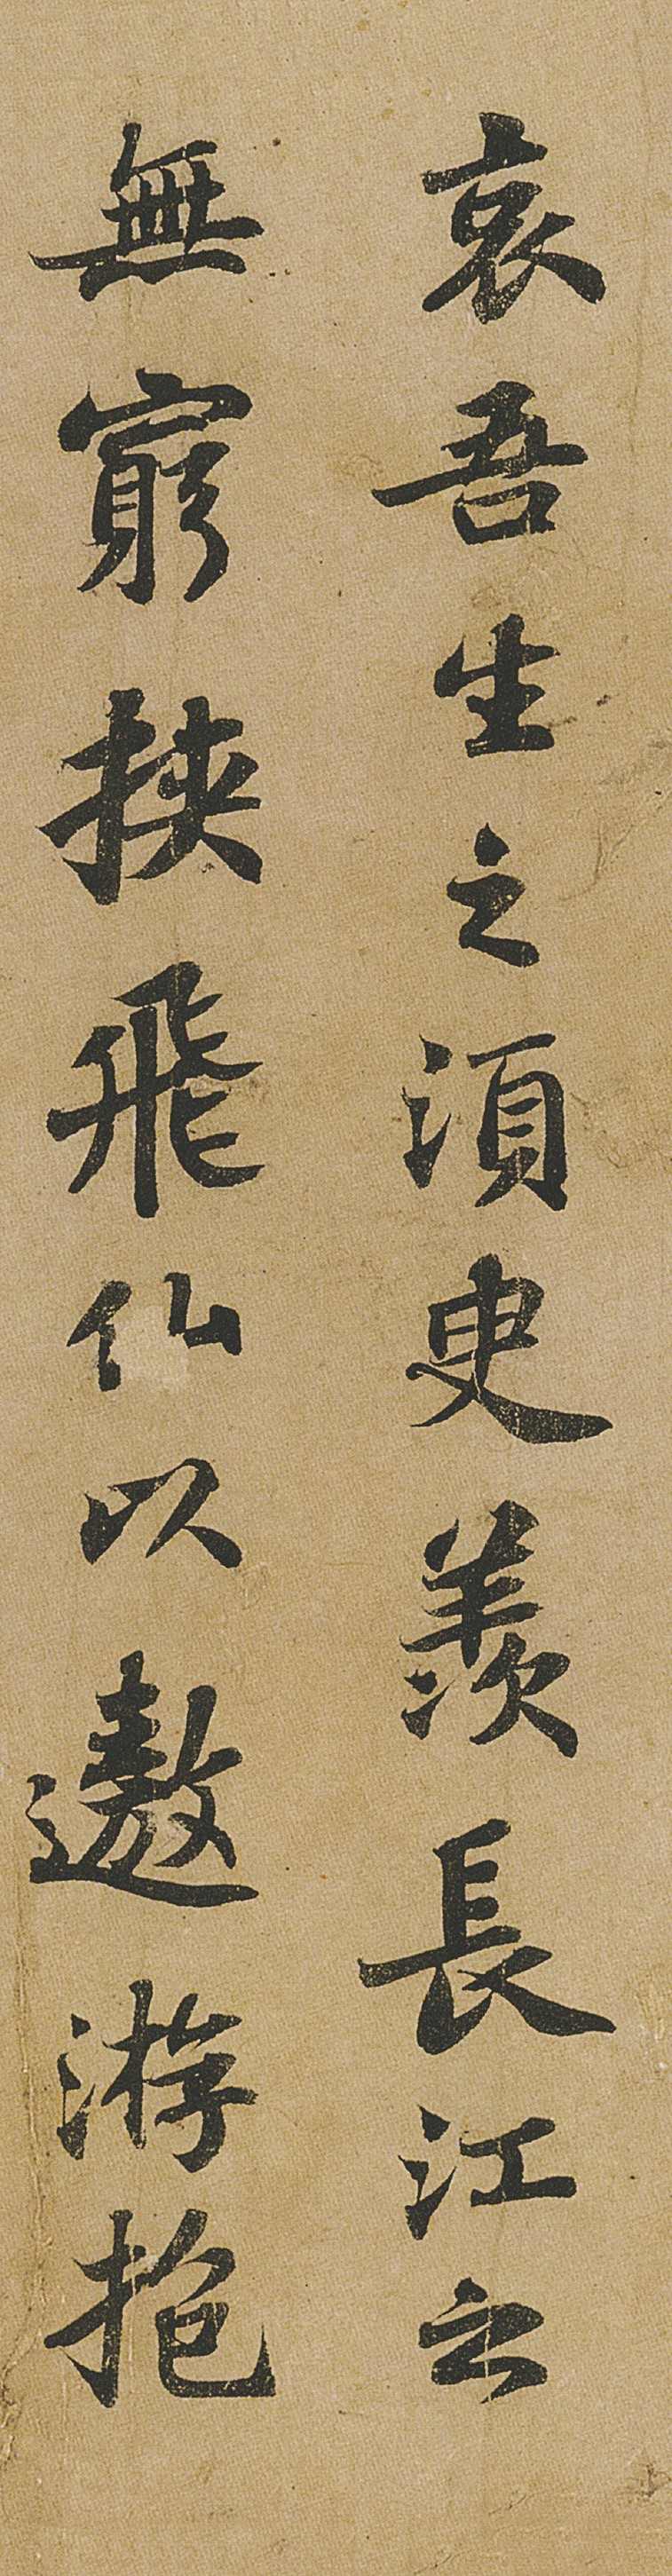 哀吾生之須臾羨長江之
無窮挾飛仙以遨游抱